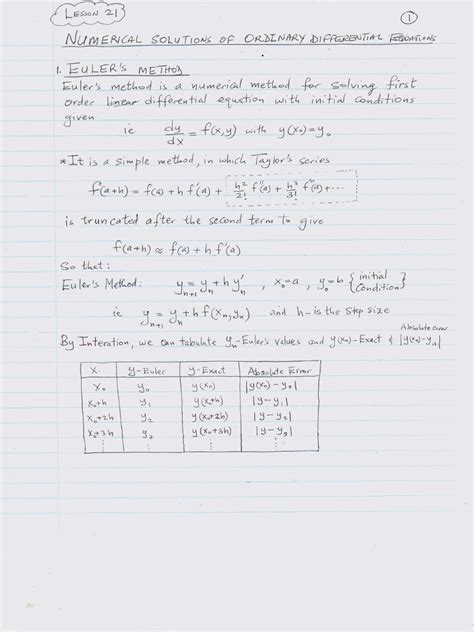 LESSON 21
①
NUMERICAL SOLUTIONS OF ORDINARY DIFFERENTIAL EQUATIONS
1. EULER'S METHOD
Euler's method is a numerical method for solving first
order linear differential equation with initial conditions
given
ie dy/dx = f(x,y) with y(x₀)=y₀
*It is a simple method, in which Taylor's series
f(a+h) = f(a) + h f'(a) + h²/2! f''(a) + h³/3! f'''(a) + ...
is truncated after the second term to give
f(a+h) ≈ f(a) + h f'(a)
So that:
Euler's Method: yₙ₊₁ = yₙ + h y'ₙ , x₀=a , y₀=b { initial Condition }
ie yₙ₊₁ = yₙ + h f(xₙ, yₙ) and h-is the step size
Absolute error
By Interation, we can tabulate yₙ-Euler's values and y(xₙ)-Exact & |y(xₙ)-yₙ|
X. y-Euler y-Exact Absolute Error
X₀ y₀ y(x₀) |y(x₀) - y₀|
X₀+h y₁ y(x₀+h) |y - y₁|
X₀+2h y₂ y(x₀+2h) |y - y₂|
X₀+3h y₃ y(x₀+3h) |y - y₃|
⋮ ⋮ ⋮ ⋮